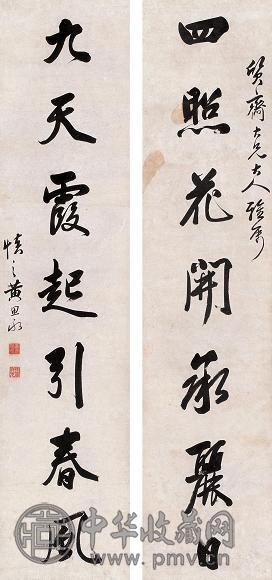 四照花開承麗日
質齋大兄大人雅属
九天霞起引春風
慎之黄思永
中华收藏网
www.pmv.cn